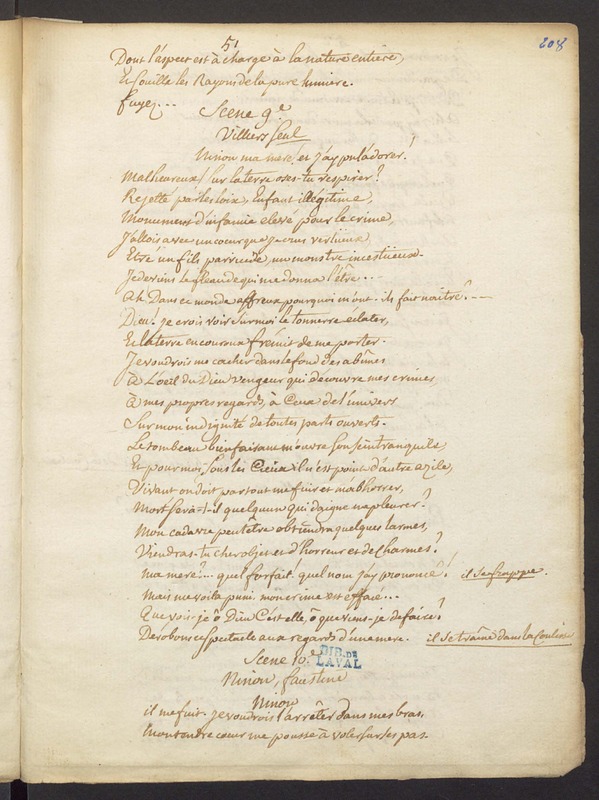 51
208
Dont l'aspect est à charge à la nature entiere,
Et souille les Rayons de la pure lumiere.
fuyez...
Scene 9.e
Villiers seul
Ninon ma mere! et j'ay pu l'adorer!
Malheureux! sur la terre oses-tu respirer?
Rejetté par les loix, Enfant illégitime,
Monument d'infamie elevé pour le crime,
J'allois avec un coeur que je crus vertüeux,
Etre un fils parricide, un monstre incestüeux.
Je deviens le fleau de qui me donna l'être...
Ah Dans ce monde affreux pourquoi m'ont-ils fait naitre?---
Dieu! je crois voir sur moi le tonnerre eclater,
Et la terre en couroux fremit de me porter.
Je voudrois me cacher dans le fond des abîmes
à L'oeil du Dieu vengeur qui découvre mes crimes,
à mes propres regards, à Ceux de l'univers
Sur mon indignité de toutes parts ouverts.
Le tombeau bienfaisant m'ouvre son sein tranquile,
Et pour moi, sous les Cieux il n'est point d'autre azile,
Vivant on doit par tout me fuir et m'abhorrer,
Mort sera-t-il quelqu'un qui daigne me pleurer?
Mon cadavre peut être obtiendra quelques larmes,
Viendras-tu cher objet et d'horreur et de charmes?
ma mere?... quel forfait! quel nom j'ay prononcé! il se frappe.
Mais me voila puni. mon crime est effacé...
Que vois-je ô Dieu C'est elle, ô que viens-je de faire?
Derobons ce spectacle aux regards d'une mere. il se traîne dans la Coulisse
Scene 10.e
BIB. DE
LAVAL
Ninon, faustine
Ninon
il me fuit. je voudrois l'arrêter dans mes bras.
Mon tendre coeur me pousse à voler sur ses pas.